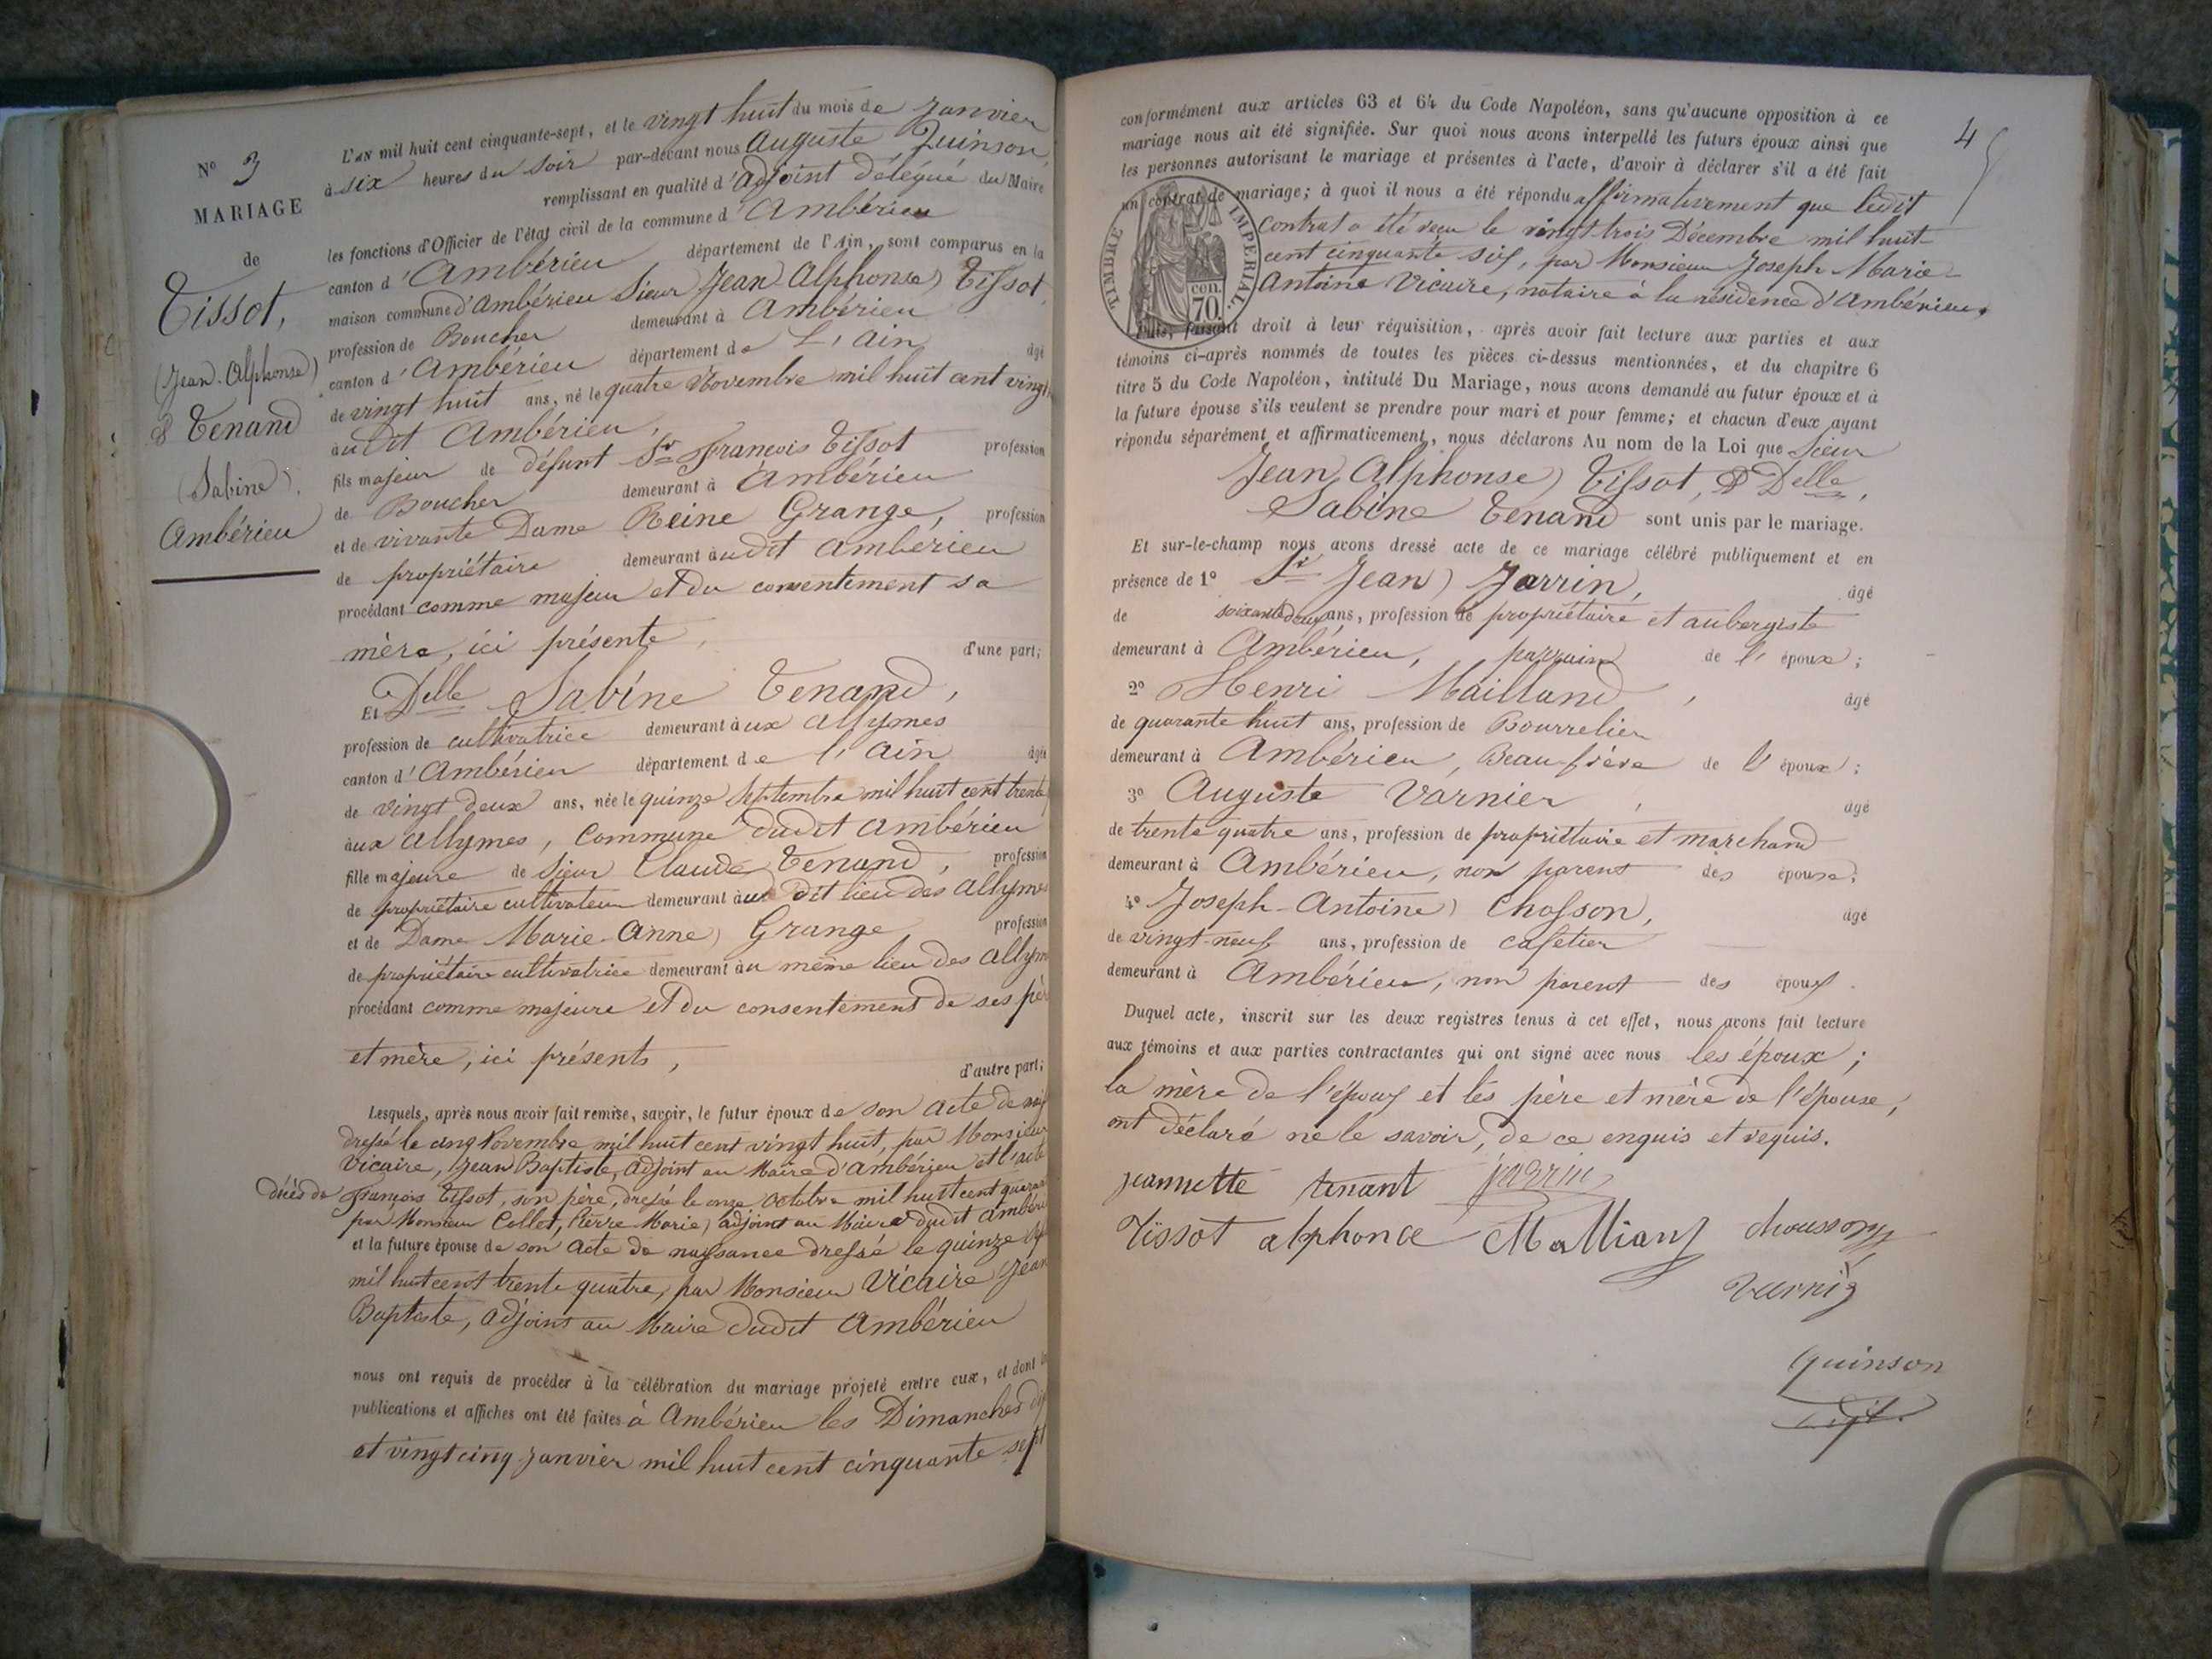 N° 3
MARIAGE
de
Tissot,
(Jean-Alphonse)
& Tenand
(Sabine).
Ambérieu
L'AN mil huit cent cinquante-sept, et le vingt huit du mois de Janvier
à six heures du soir par-devant nous Auguste Quinson,
remplissant en qualité d'adjoint délégué du Maire
les fonctions d'Officier de l'état civil de la commune d'Ambérieu
canton d'Ambérieu, département de l'Ain, sont comparus en la
maison commune d'Ambérieu Sieur Jean Alphonse Tissot,
profession de Boucher demeurant à Ambérieu
canton d'Ambérieu département de L'Ain âgé
de vingt huit ans, né le quatre Novembre mil huit cent vingt
audit Ambérieu,
fils majeur de défunt Sr François Tissot profession
de Boucher demeurant à Ambérieu
et de vivante Dame Reine Grange, profession
de propriétaire demeurant audit Ambérieu
procédant comme majeur et du consentement sa
mère, ici présente, d'une part;
Et Delle Sabine Tenand,
profession de cultivatrice demeurant aux Allymes
canton d'Ambérieu département de l'Ain âgée
de vingt deux ans, née le quinze Septembre mil huit cent trente
aux Allymes, Commune dudit Ambérieu
fille majeure de Sieur Claude Tenand, profession
de propriétaire cultivateur demeurant au dit lieu des Allymes
et de Dame Marie-Anne Grange profession
de propriétaire cultivatrice demeurant au même lieu des Allym
procédant comme majeure et du consentement de ses pèr
et mère, ici présents, d'autre part;
Lesquels, après nous avoir fait remise, savoir, le futur époux de son acte de nais
dressé le cinq Novembre mil huit cent vingt huit, par Monsieur
Vicaire, Jean Baptiste, adjoint au Maire d'Ambérieu et l'acte
décès de François Tissot, son père, dressé le onze Octobre mil huit cent quaran
par Monsieur Collet, Pierre Marie, adjoint au Maire dudit Ambérieu
et la future épouse de son acte de naissance dressé le quinze Sep
mil huit cent trente quatre, par Monsieur Vicaire Jean
Baptiste, adjoint au Maire dudit Ambérieu
nous ont requis de procéder à la célébration du mariage projeté entre eux, et dont les
publications et affiches ont été faites à Ambérieu les Dimanches dix
et vingt cinq Janvier mil huit cent cinquante sept
4
conformément aux articles 63 et 64 du Code Napoléon, sans qu'aucune opposition à ce
mariage nous ait été signifiée. Sur quoi nous avons interpellé les futurs époux ainsi que
les personnes autorisant le mariage et présentes à l'acte, d'avoir à déclarer s'il a été fait
un contrat de mariage; à quoi il nous a été répondu affirmativement que ledit
contrat a été reçu le vingt-trois Décembre mil huit
cent cinquante six, par Monsieur Joseph Marie
Antoine Vicaire, notaire à la résidence d'Ambérieu.
TIMBRE IMPERIAL.
cen.
70.
Puis, faisant droit à leur réquisition, après avoir fait lecture aux parties et aux
témoins ci-après nommés de toutes les pièces ci-dessus mentionnées, et du chapitre 6
titre 5 du Code Napoléon, intitulé Du Mariage, nous avons demandé au futur époux et à
la future épouse s'ils veulent se prendre pour mari et pour femme; et chacun d'eux ayant
répondu séparément et affirmativement, nous déclarons Au nom de la Loi que Sieur
Jean Alphonse Tissot, & Delle,
Sabine Tenand sont unis par le mariage.
Et sur-le-champ nous avons dressé acte de ce mariage célébré publiquement et en
présence de 1° Sr Jean Jarrin, âgé
de soixante deux ans, profession de propriétaire et aubergiste
demeurant à Ambérieu, parrain de l'époux;
2° Henri Mailland, âgé
de quarante huit ans, profession de Bourrelier
demeurant à Ambérieu, Beau frère de l'époux;
3° Auguste Varnier, âgé
de trente quatre ans, profession de propriétaire et marchand
demeurant à Ambérieu, non parent des époux.
4° Joseph-Antoine Chosson, âgé
de vingt-neuf ans, profession de cafetier
demeurant à Ambérieu, non parent des époux.
Duquel acte, inscrit sur les deux registres tenus à cet effet, nous avons fait lecture
aux témoins et aux parties contractantes qui ont signé avec nous les époux;
la mère de l'époux et les père et mère de l'épouse,
ont déclaré ne le savoir, de ce enquis et requis.
jeannette tenant jarrin
Tissot alphonce Mallian chousson
Varnié
Quinson